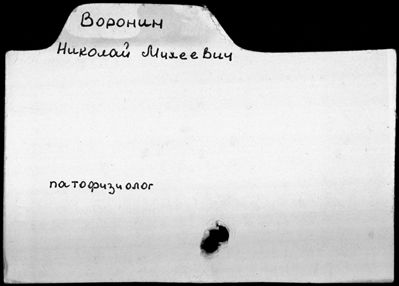 Воронин
Николай Михеевич
патофизиолог